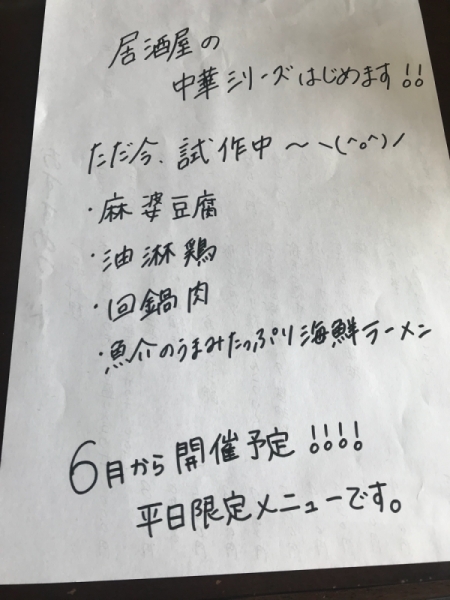 居酒屋の
中華シリーズはじめます!!
ただ今、試作中〜ヽ(^o^)ノ
・麻婆豆腐
・油淋鶏
・回鍋肉
・魚介のうまみたっぷり海鮮ラーメン
6月から開催予定!!!!
平日限定メニューです。